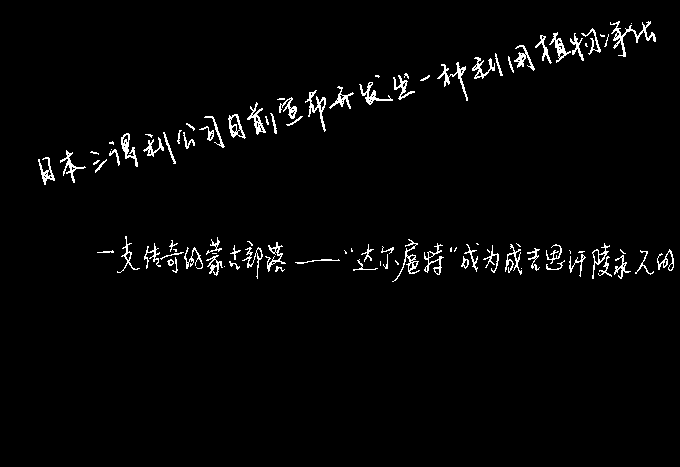 日本三得利公司日前宣布开发出一种利用植物净化
一支传奇的蒙古部落——“达尔扈特”成为成吉思汗陵永久的